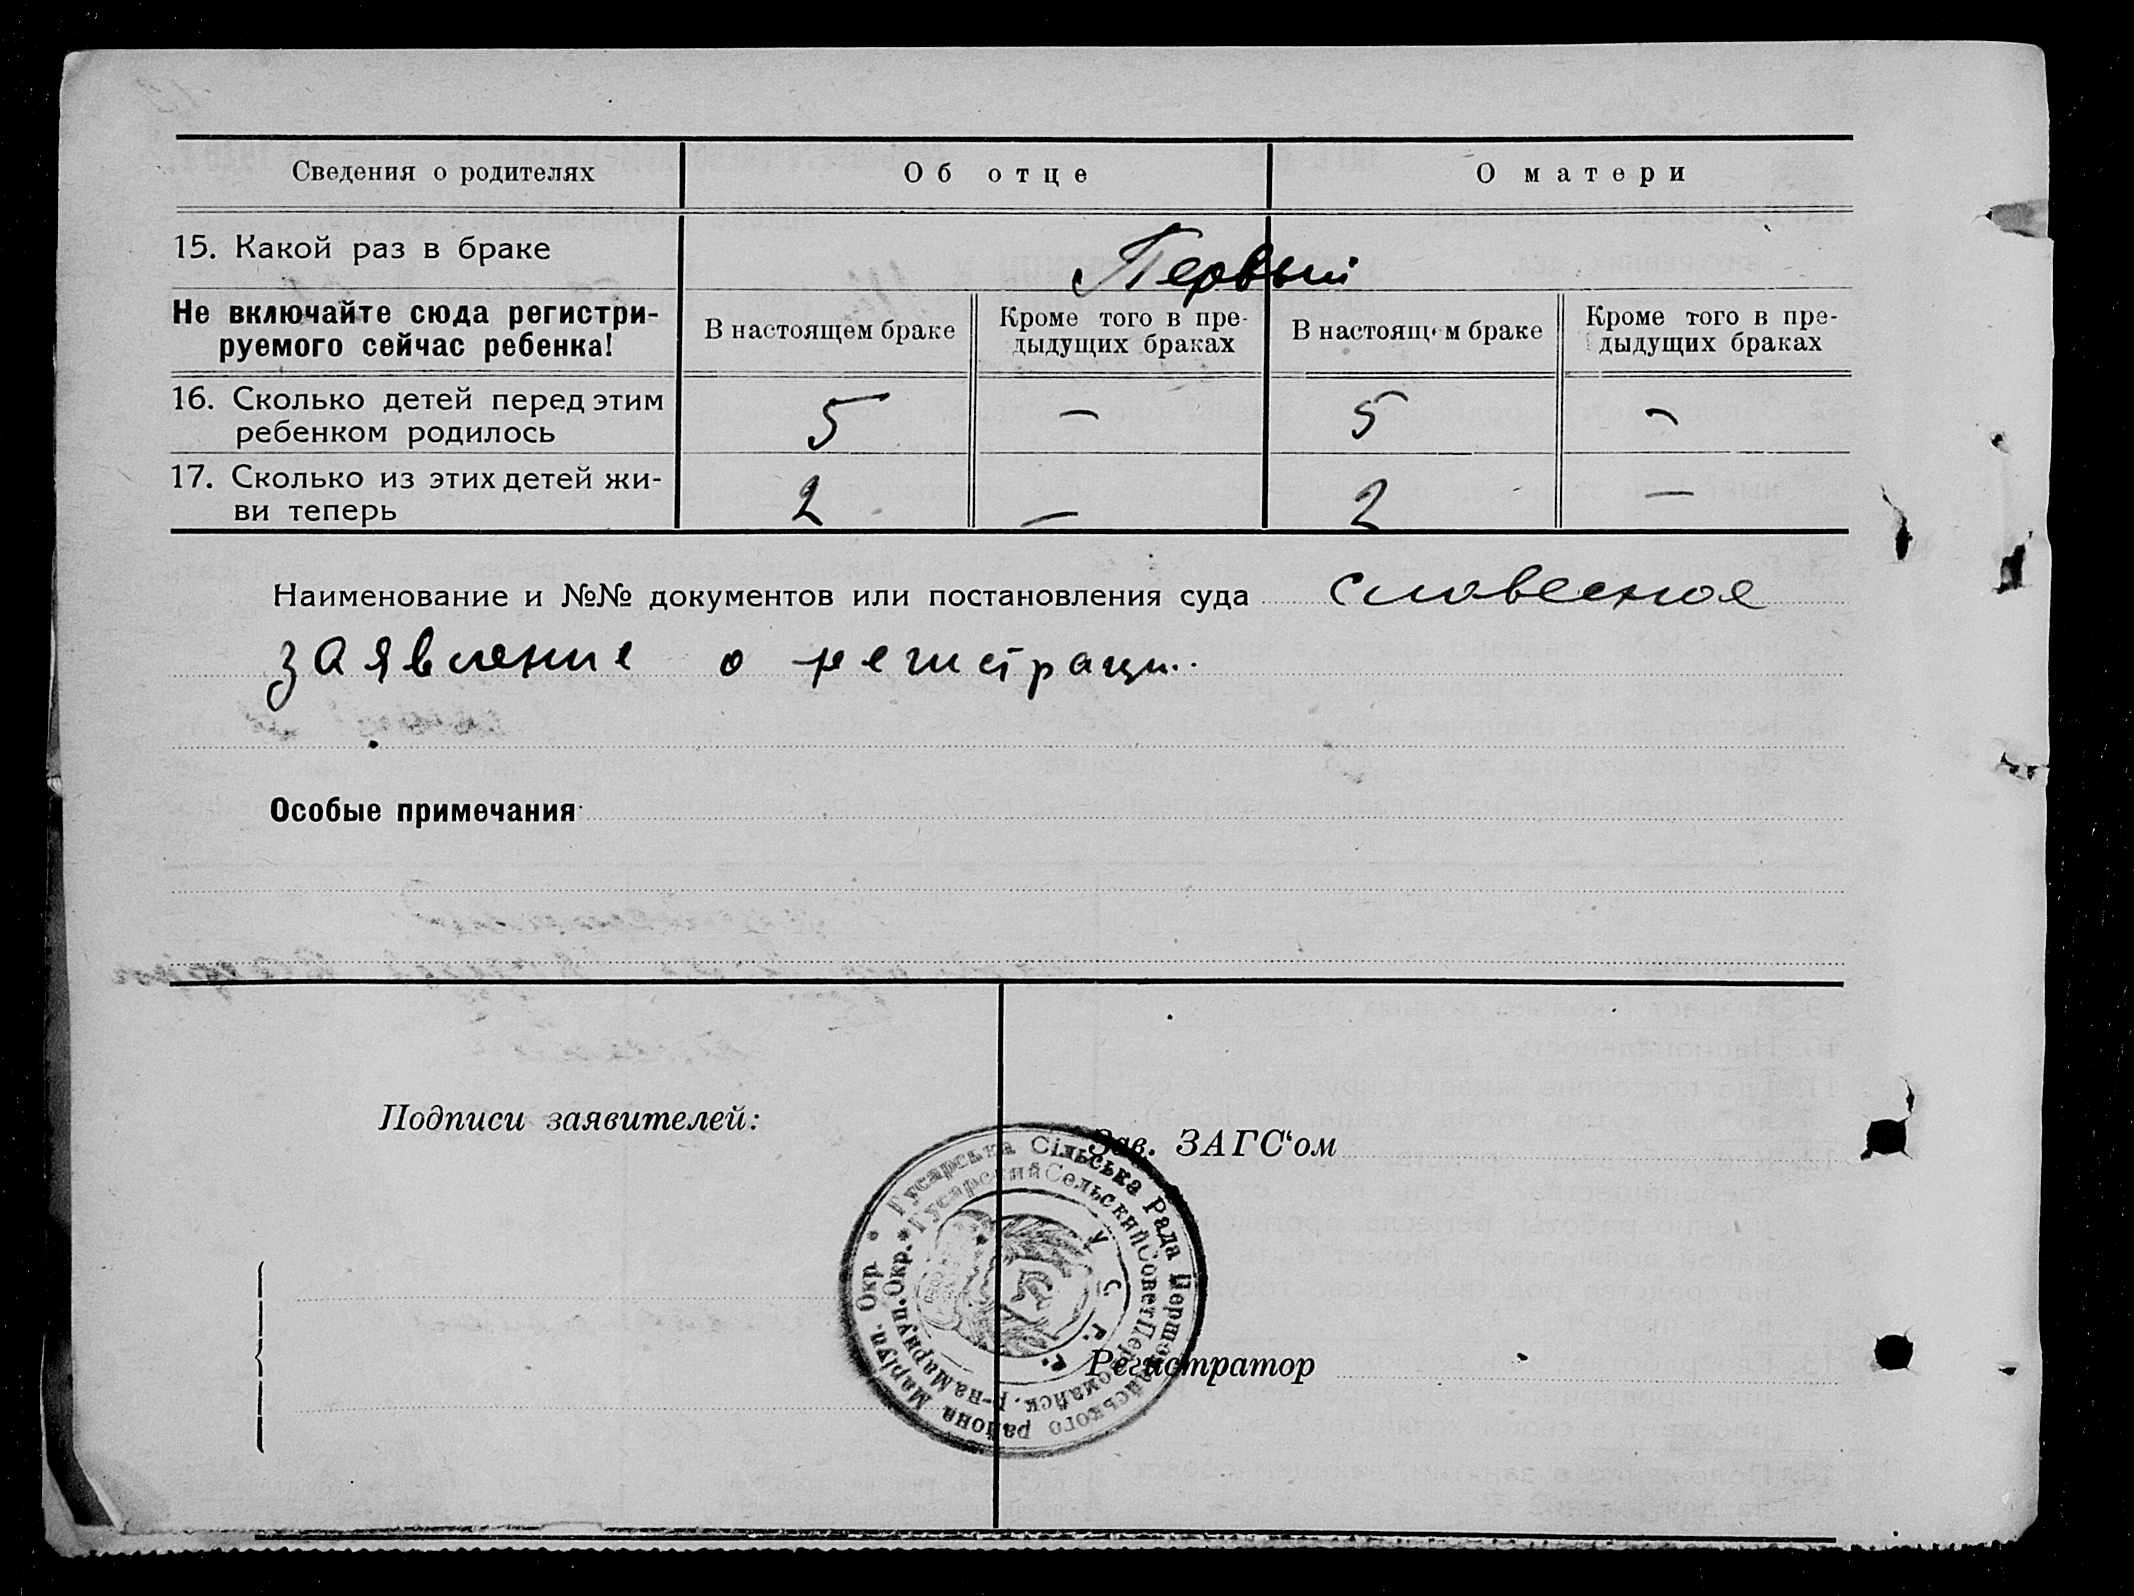 Сведения о родителях Об отце О матери
15. Какой раз в браке Первый
Не включайте сюда регистри-
руемого сейчас ребенка!
В настоящем браке
Кроме того в пре-
дыдущих браках
В настоящем браке
Кроме того в пре-
дыдущих браках
16. Сколько детей перед этим
ребенком родилось
5 — 5 —
17. Сколько из этих детей жи-
ви теперь
2 — 2 —
Наименование и №№ документов или постановления суда словесное
заявление о регистраци..
Особые примечания
Подписи заявителей:
Зав. ЗАГС‘ом
Регистратор
Гусарська Сільська Рада Першомайського района Маріуп. Окр.
Гусарский Сельский Совет Первомайск. р-на Мариуп. Окр.
У. С. Р. Р.